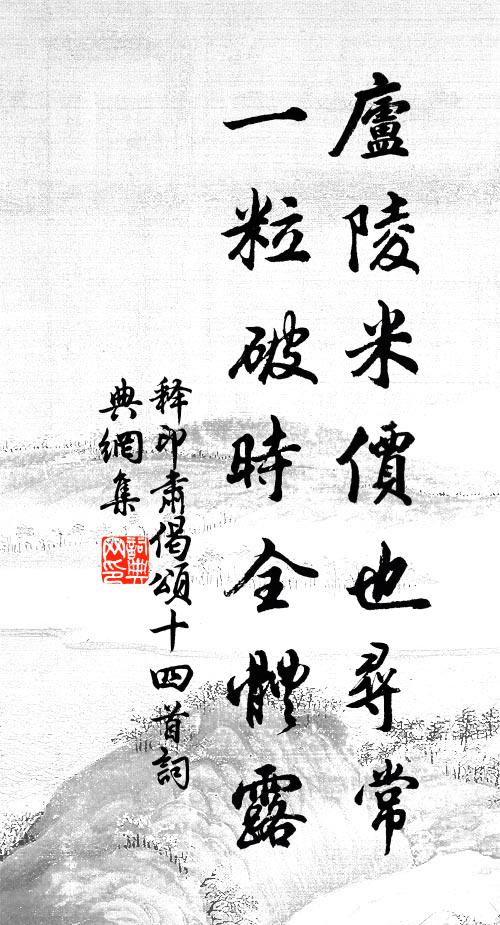 廬陵米價也尋常
一粒破時全體露
释印肅偈頌十四首詞
典網集
詞典網印